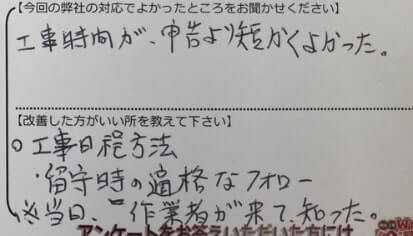 【今回の弊社の対応でよかったところをお聞かせください】
工事時間が、申告より短かくよかった。
【改善した方がいい所を教えて下さい】
○工事日程方法
・留守時の適格なフォロー
※当日、作業者が来て、知った。
アンケートをお答えいただいた方には